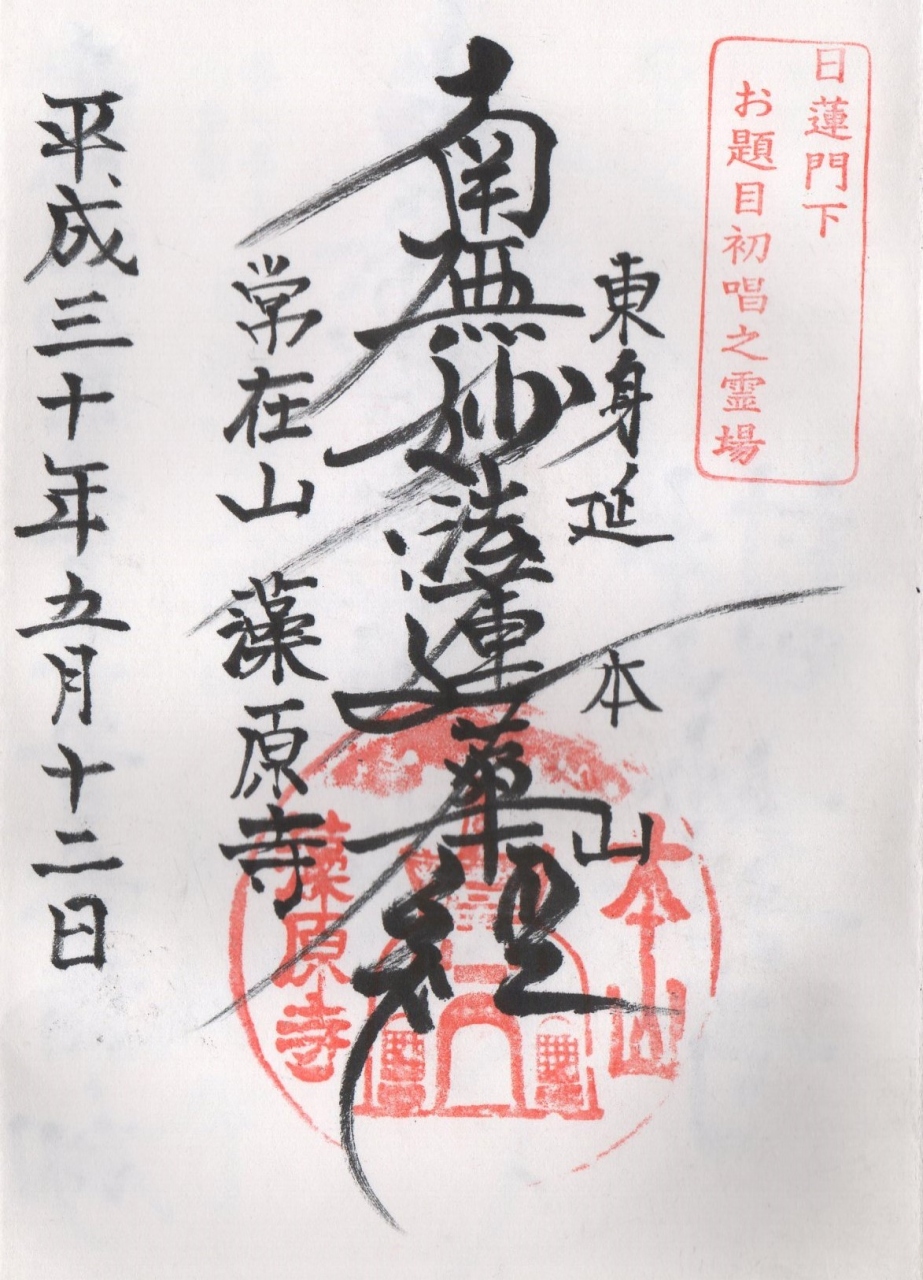 日蓮門下
お題目初唱之霊場
東身延
本山
南無妙法蓮華経
常在山 藻原寺
平成三十年五月十二日
本山
藻原寺